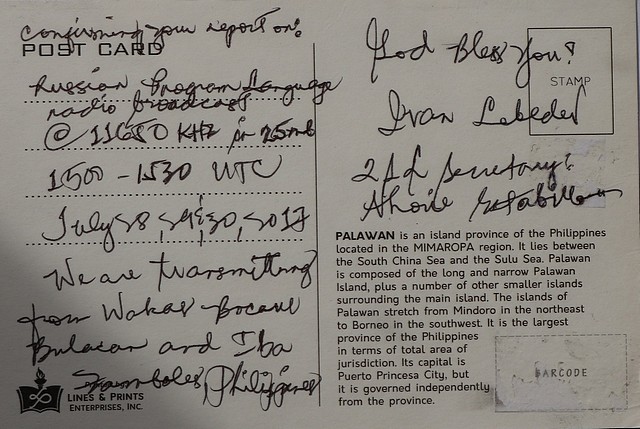 Confirming your report on:
POST CARD
Russian Program Language
radio broadcast
@ 11650 KHz in 25mb
1500 - 1530 UTC
July 28, 29, 30, 2017
We are transmitting
from
Bulacan and Iba
Zambales, Philippines
LINES & PRINTS
ENTERPRISES, INC.
God Bless You!
STAMP
Ivan Lebedev
Secretary:
PALAWAN is an island province of the Philippines
located in the MIMAROPA region. It lies between
the South China Sea and the Sulu Sea. Palawan
is composed of the long and narrow Palawan
Island, plus a number of other smaller islands
surrounding the main island. The islands of
Palawan stretch from Mindoro in the northeast
to Borneo in the southwest. It is the largest
province of the Philippines
in terms of total area of
jurisdiction. Its capital is
Puerto Princesa City, but
it is governed independently
from the province.
BARCODE